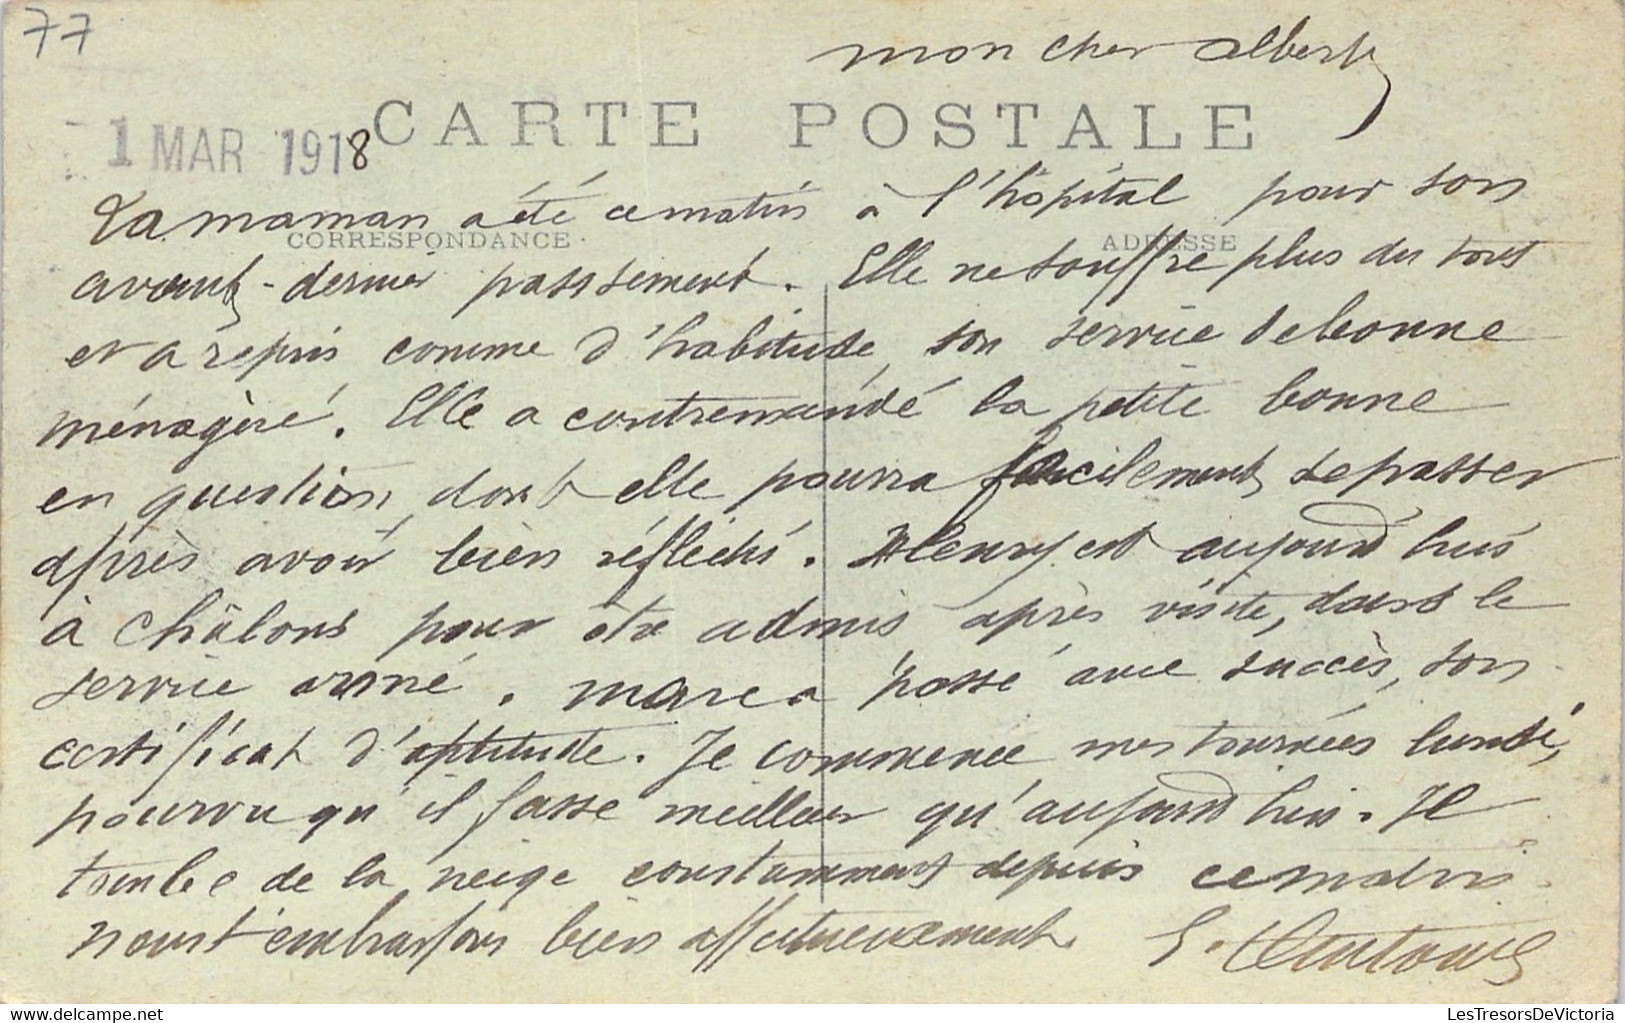 77
mon cher Albert
CARTE POSTALE
1 MAR 1918
Ta maman a été ce matin à l'hôpital pour son
CORRESPONDANCE
ADRESSE
avant-dernier passsement. Elle ne souffre plus du tout
et a repris comme d'habitude, son service de bonne
ménagère. Elle a contremandé la petite bonne
en question, dont elle pourra facilement se passer
après avoir bien réfléchi. Henry est aujourd'hui
à Châlons pour être admis après visite, dans le
service armé. Marc a passé avec succès, son
certificat d'aptitude. Je commence mes tournées lundi,
pourvu qu'il fasse meilleur qu'aujourd'hui. Il
tombe de la neige constamment depuis ce matin.
Nous t'embrassons bien affectueusement.
LesTresorsDeVictoria.com